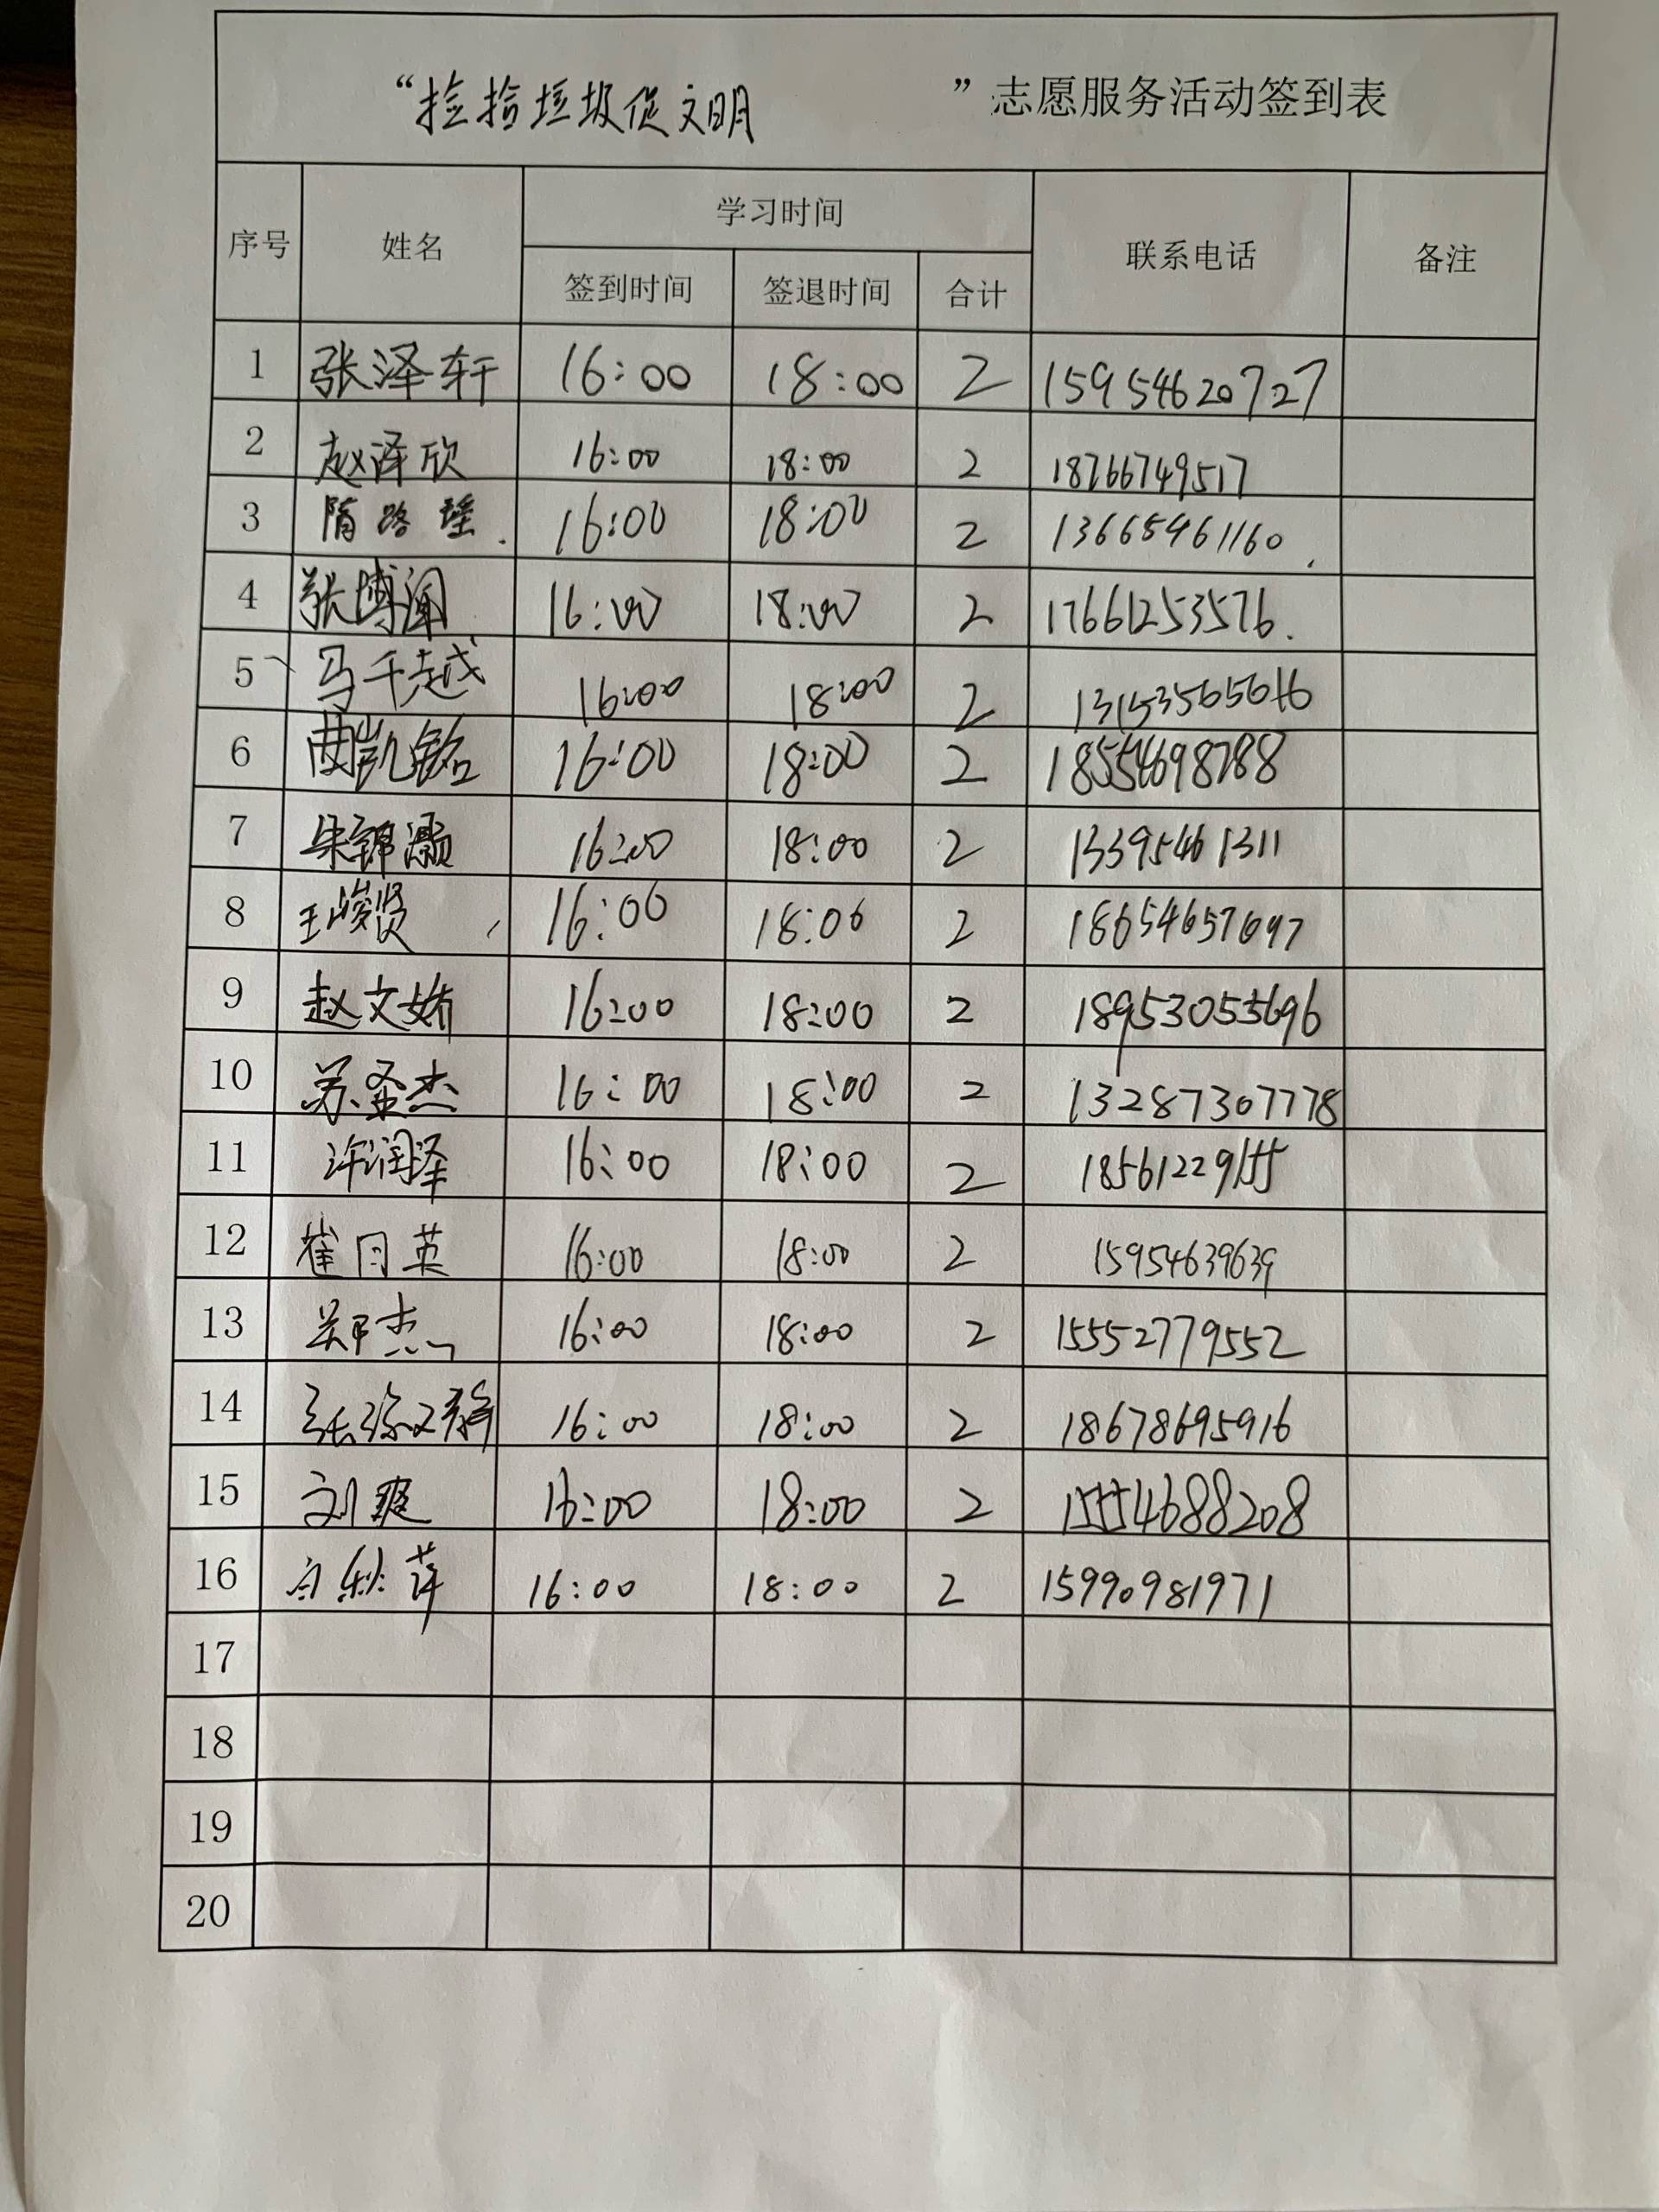 “捡捡垃圾促文明 ”志愿服务活动签到表
序号 姓名 学习时间 联系电话 备注
签到时间 签退时间 合计
1 张泽轩 16:00 18:00 2 15954620727
2 赵泽欣 16:00 18:00 2 18766749517
3 隋路瑶 16:00 18:00 2 13665461160
4 张博闻 16:00 18:00 2 17661253576
5 马千越 16:00 18:00 2
6 16:00 18:00 2 18554698788
7 朱锦灏 16:00 18:00 2 13395461311
8 王峻贤 16:00 18:00 2 18654657697
9 赵文娇 16:00 18:00 2 18953055696
10 苏圣杰 16:00 18:00 2 13287307778
11 许润泽 16:00 18:00 2 18561229155
12 崔月英 16:00 18:00 2 15954639639
13 郑杰 16:00 18:00 2 15552779552
14 16:00 18:00 2 18678695916
15 刘爽 16:00 18:00 2 15554688208
16 秋萍 16:00 18:00 2 15990981971
17
18
19
20